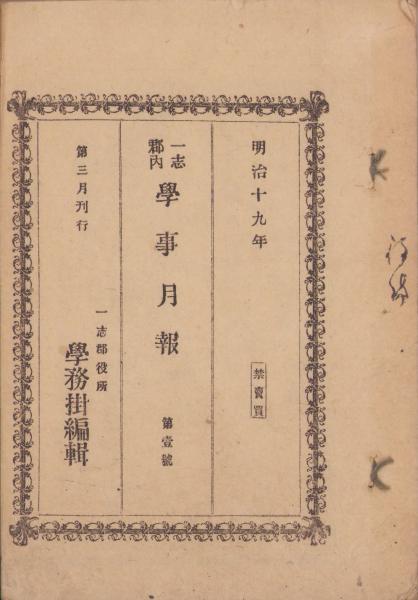 明治十九年
禁賣買
一志郡内 學事月報 第壹號
第三月刊行
一志郡役所
學務掛編輯